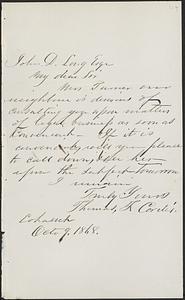 John D. Long Esqr
My dear Sir
Mrs Turner our
neighbour is desirous of
consulting you upon matters
of legal business as soon as
convenient. If it is
convenient, will you please
to call down, & see her
upon the subject tomorrow
I remain
Truly Yours
Thomas K
Cohasset
Oct 9, 1868.